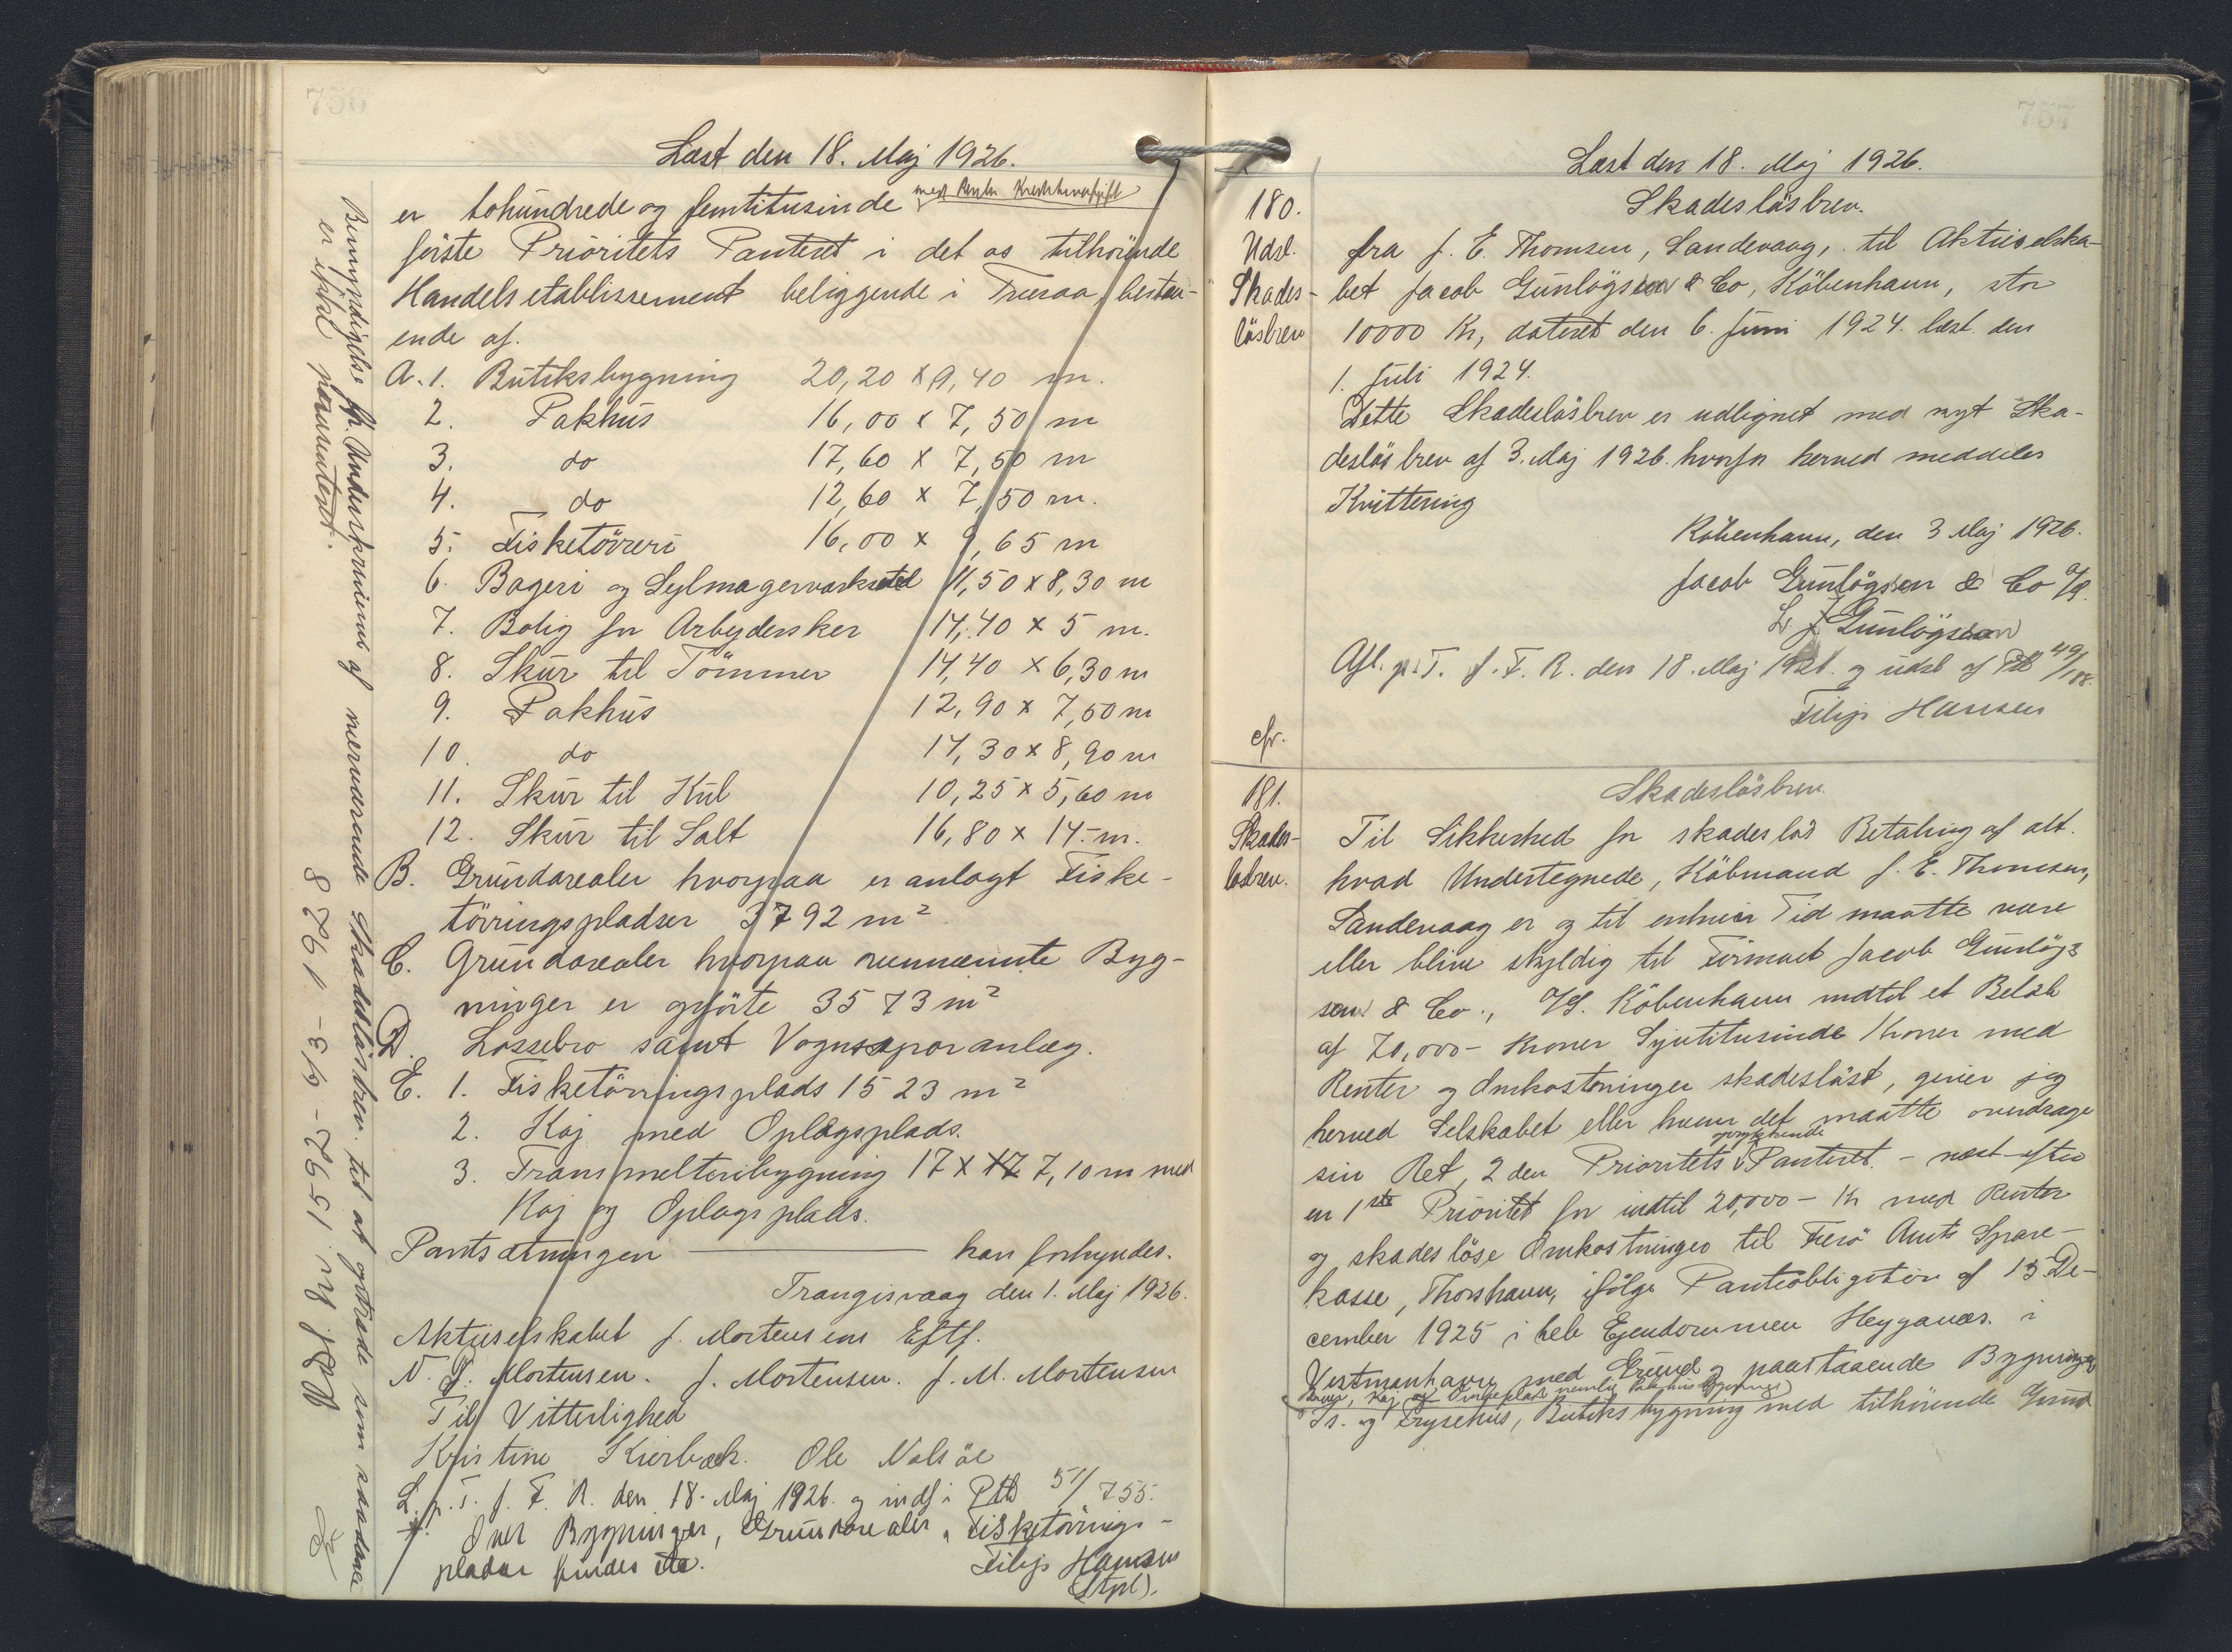 756
Læst den 18. Maj 1926.
er tohundrede og femtitusinde med Renter
første Prioritets Panteret i det os tilhørende
Handelsetablissement beliggende i Tveraa, bestaa-
ende af.
A. 1. Butiksbygning 20,20 x 9,40 m.
2. Pakhus 16,00 x 7,50 m
3. do 17,60 x 7,50 m
4. do 12,60 x 7,50 m.
5. Fisketörreri 16,00 x 9,65 m
6. Bageri og Sejlmagerværksted 11,50 x 8,30 m
7. Bolig for Arbejdersker 14,40 x 5 m.
8. Skur til Tömmer 14,40 x 6,30 m
9. Pakhus 12,90 x 7,50 m
10. do 14,30 x 8,90 m
11. Skur til Kul 10,25 x 5,60 m
12. Skur til Salt 16,80 x 14.- m.
B. Grundarealer hvorpaa er anlagt Fiske-
törringspladser 3792 m²
C. Grundarealer hvorpaa ovennævnte Byg-
ninger er opförte 3573 m²
D. Lossebro samt Vognsporanlæg.
E. 1. Fisketörringsplads 1523 m²
2. Kaj med Oplagsplads.
3. Transmelteribygning 17 x 17 7,10 m med
Kaj og Oplagsplads.
Pantsætningen ——— kan forhyndes.
Trangisvaag den 1. Maj 1926.
Aktieselskabet J. Mortensens Eftf.
N. J. Mortensen. J. Mortensen. J. M. Mortensen
Til Vitterlighed
Kristine Kierbæk. Ole Nolsöe
L. p. T. f. F. R. den 18. Maj 1926. og indf i Ptb 51/755.
Over Bygninger, Grundarealer, Fisketörrings-
pladser findes
Filip Hansen
(Stpl).
Bemyndigelse fr. Underskriverne af nærværende Skadeslösbrev til at optræde som saadanne
er ifölge præsenteret.
Aflf. fri 1592 - 9/3 - 1928
757
Læst den 18. Maj 1926.
180.
Udsl.
Skades-
lösbrev
Skadeslösbrev.
fra J. E. Thomsen, Sandevaag, til Aktieselska-
bet Jacob Gunlögsen & Co, Köbenhavn, stor
10000 Kr, dateret den 6. Juni 1924. læst den
1. Juli 1924.
Dette Skadeslösbrev er udlignet med nyt Ska-
deslösbrev af 3. Maj 1926. hvorfor herved meddeles
Kvittering
Köbenhavn, den 3 Maj 1926.
Jacob Gunlögsen & Co A/S.
J. Gunlögsen
Afl. p. T. f. F. R. den 18. Maj 1926. og udsl af Ptb 49/188.
Filip Hansen
cfr.
181.
Skades-
lösbrev.
Skadeslösbrev.
Til Sikkerhed for skadeslös Betaling af alt.
hvad Undertegnede, Köbmand J. E. Thomsen,
Sandevaag er og til enhver Tid maatte være
eller blive skyldig til Firmaet Jacob Gunlög-
sen & Co., A/S. Köbenhavn indtil et Belöb
af 70,000 - Kroner Syvtitusinde Kroner med
Renter og Omkostninger skadeslöst, giver jeg
herved Selskabet eller hvem det maatte overdrage
sin Ret, 2den Prioritets oprykkende Panteret. - næst efter
en 1ste Prioritet for indtil 20,000 - Kr med Renter
og skadeslöse Omkostninger til Færö Amts Spare-
kasse, Thorshavn, ifölge Panteobligation af 15. De-
cember 1925 i hele Ejendommen Heyganæs. i
Vestmanhavn med Grund og paastaaende Bygninger
Kaj og nemlig Pakhusbygninger
Is. og Frysehus, Butiksbygning med tilhörende Grund